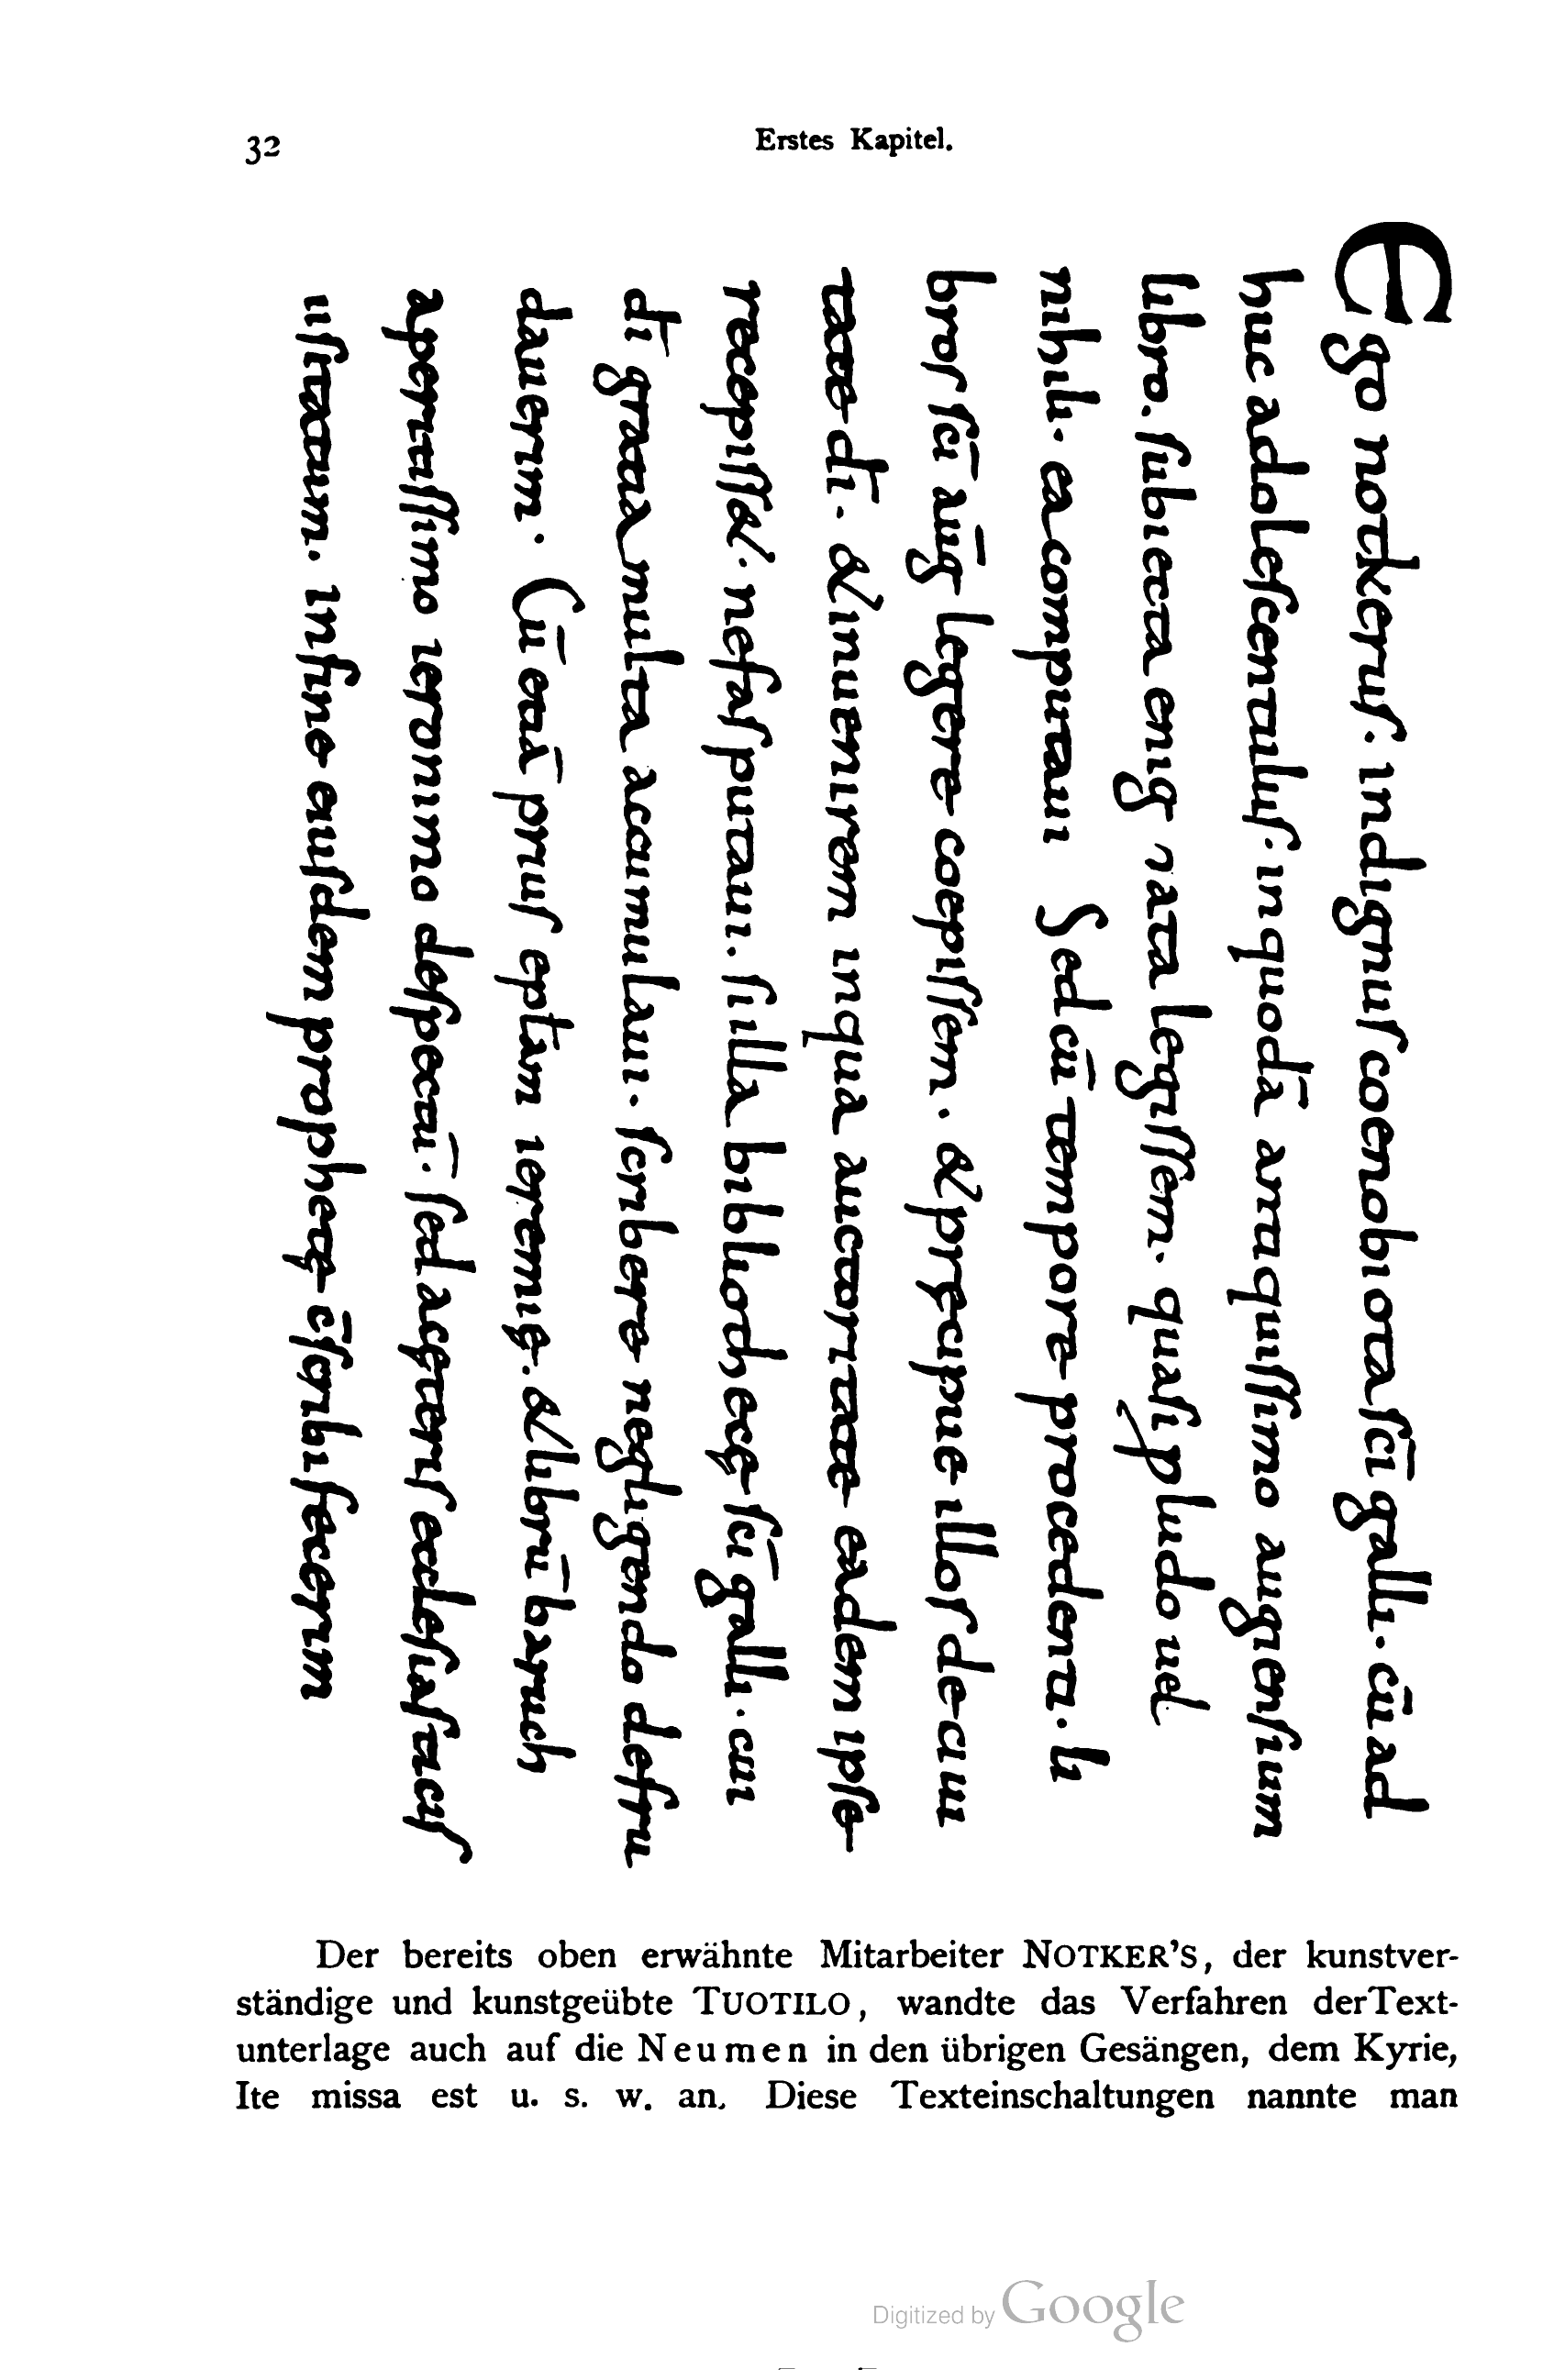 32
Erstes Kapitel.
Ego notkeruſ. indignuſ coenobiota ſc̄i galli. cū ad
huc adoleſcentuluſ. in quodā antiquiſſimo augienſium
libro. ſubiecta enig nata legiſſem. quaſi ꝓ ludo uel
nihili. ea computaui Sed cū tempore procedenti. li
broſ ſc̄i aūg legere coepiſſem. & pręcipue illoſ de ciui
tate dī. & inuenirem in qua auctoritate eadem ipſe
recepiſſ&. nefaſ putaui. ſi illa bibliothecę ſc̄i galli. cui
dī gratia multa accumulaui. ſcribere negligendo defru
dauerim. Cū etiā priuſ eptam ieremię. & librū baruch
apertiſſimo ieronimo deſpectū. ſed acceteriſ eccleſiaſticiſ
uſitatum. in fine eiuſdem prophetę c̄ſcribi fecerim
Der bereits oben erwähnte Mitarbeiter NOTKER'S, der kunstver-
ständige und kunstgeübte TUOTILO, wandte das Verfahren derText-
unterlage auch auf die Neumen in den übrigen Gesängen, dem Kyrie,
Ite missa est u. s. w. an. Diese Texteinschaltungen nannte man
Digitized by Google